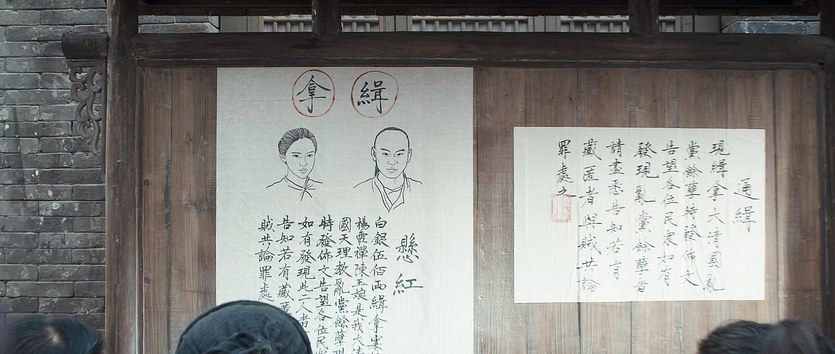 緝拿
懸紅
白銀伍佰兩緝拿案
楊露禪陳玉娘是我大清
國天理教亂黨餘孽現
特發佈文告望各位民
如有發現此二人者
告知若有藏匿
賊共論罪處
通緝
現緝拿大清國亂
黨餘孽特發佈文
告望各位民眾如有
發現亂黨餘孽者
請盡悉告知若有
藏匿者與賊共論
罪處之